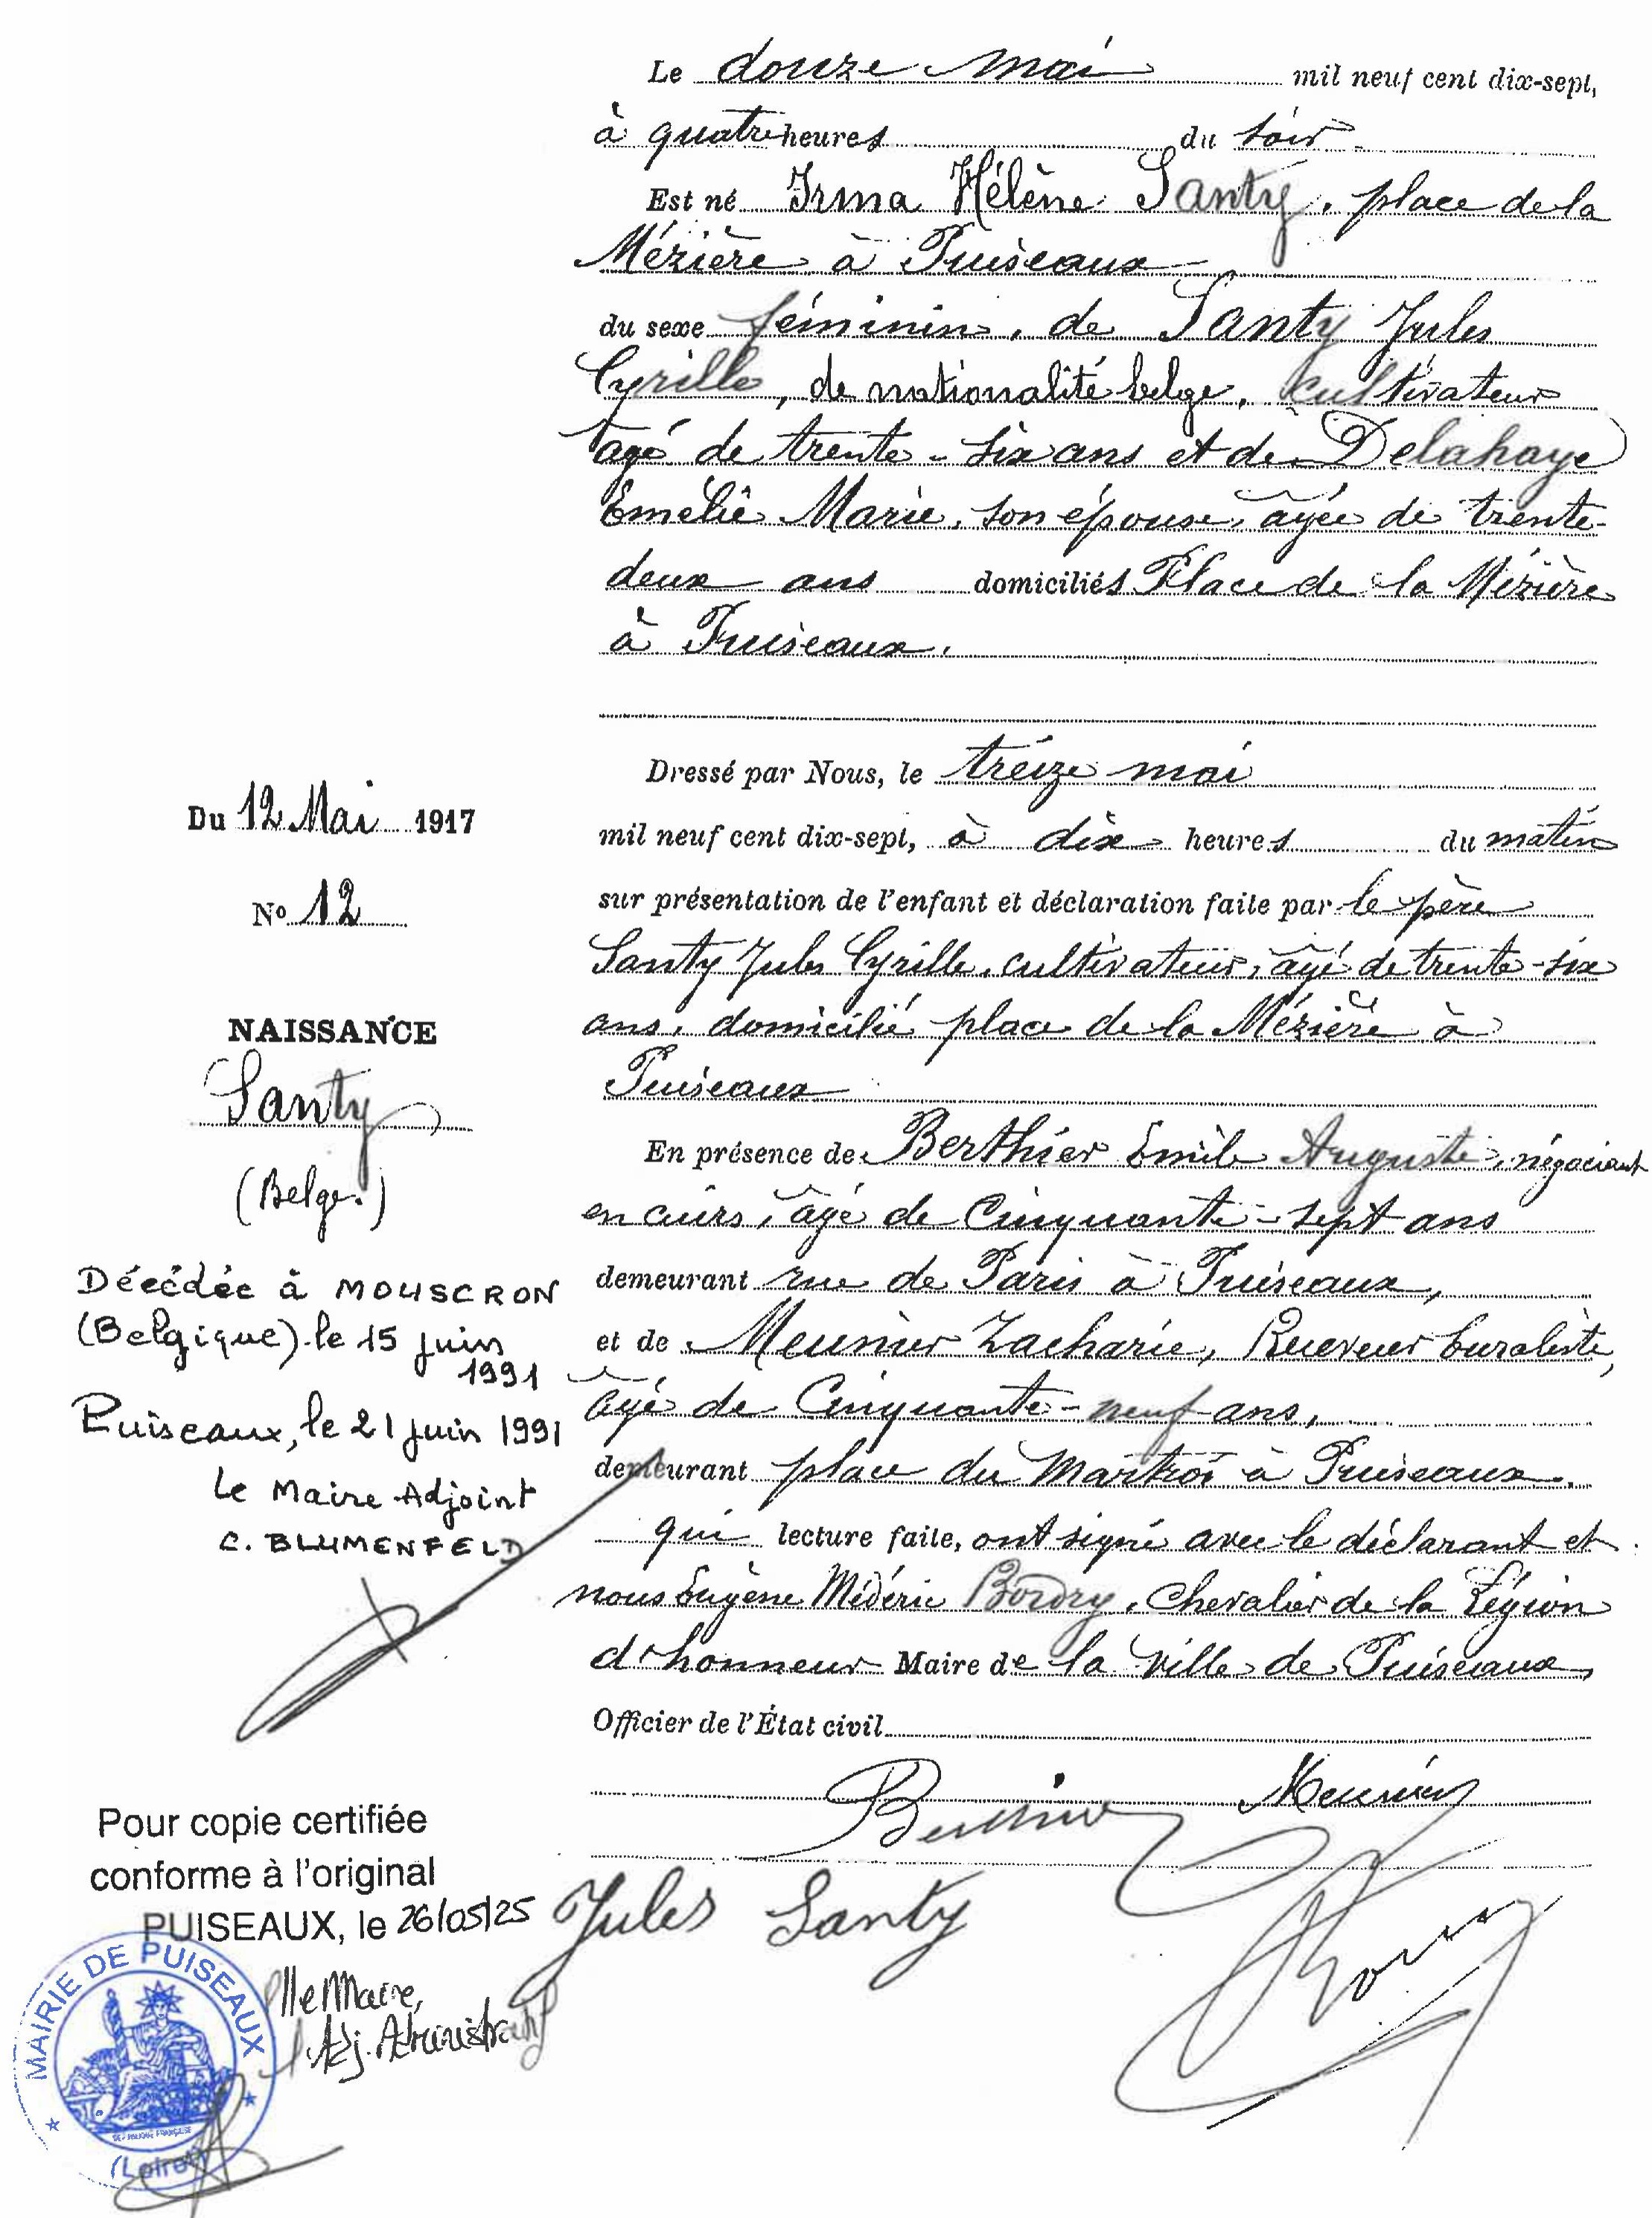 Le douze mai mil neuf cent dix-sept,
à quatre heures du soir
Est né Irma Hélène Santy, place de la
Mézière à Puiseaux
du sexe féminin, de Santy Jules
Cyrille, de nationalité belge, cultivateur
âgé de trente-six ans et de Delahaye
Emélie Marie, son épouse, âgée de trente-
deux ans domiciliés Place de la Mézière
à Puiseaux.
Dressé par Nous, le treize mai
mil neuf cent dix-sept, à dix heures du matin
sur présentation de l'enfant et déclaration faite par le père
Santy Jules Cyrille, cultivateur, âgé de trente-six
ans, domicilié place de la Mézière à
Puiseaux
En présence de Berthier Emile Auguste, négociant
en cuirs, âgé de Cinquante-sept ans
demeurant rue de Paris à Puiseaux,
et de Meunier Zacharie, Receveur buraliste,
âgé de Cinquante-neuf ans,
demeurant place du Martroi à Puiseaux.
qui lecture faite, ont signé avec le déclarant et
nous Eugène Médéric Bordry, Chevalier de la Légion
d'honneur Maire de la ville de Puiseaux,
Officier de l'État civil
Meunier
Jules Santy
Du 12 Mai 1917
No 12
NAISSANCE
Santy
(Belge.)
Décédée à MOUSCRON
(Belgique) le 15 juin
1991
Puiseaux, le 21 juin 1991
Le Maire Adjoint
C. BLUMENFELD
Pour copie certifiée
conforme à l'original
PUISEAUX, le 26/05/25
le Maire,
Adj. Administratif
MAIRIE DE PUISEAUX
RÉPUBLIQUE FRANÇAISE
(Loiret)